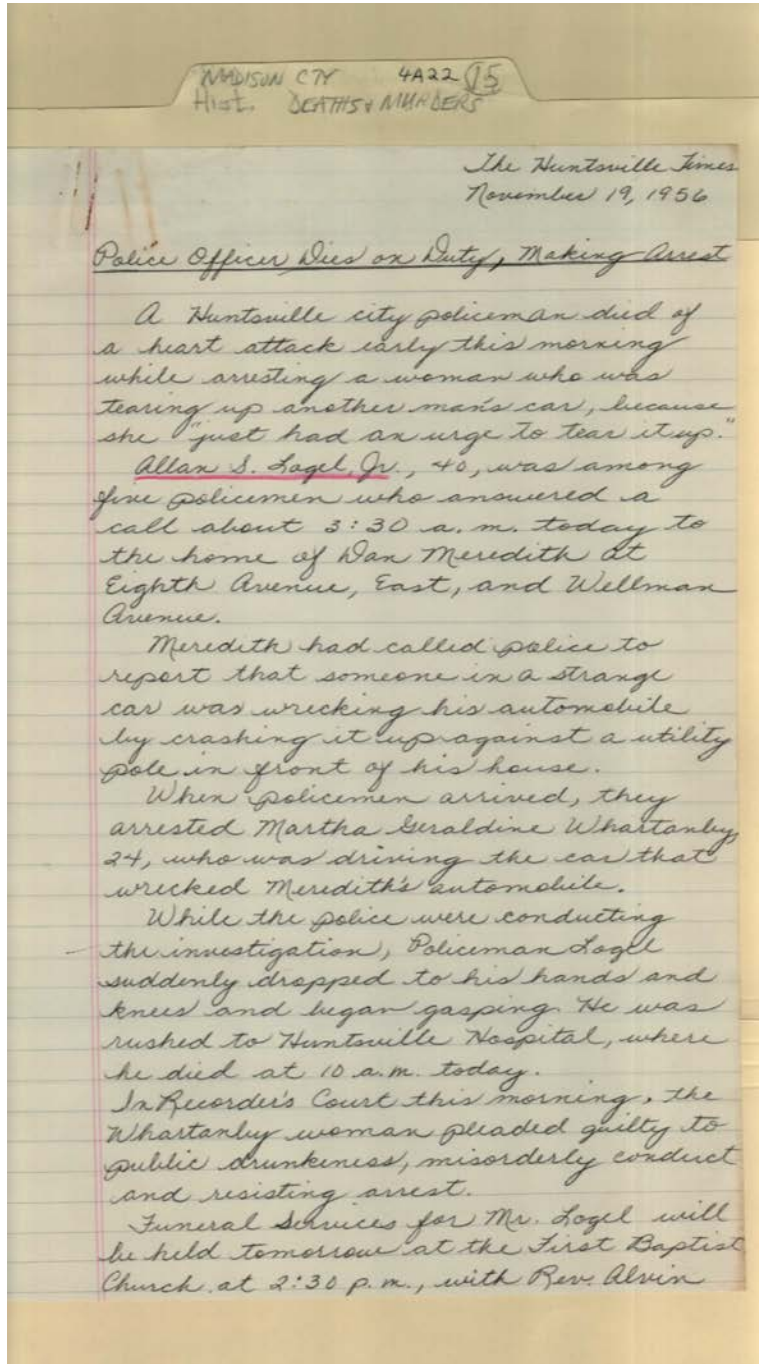 MADISON CTY 4A22 15
Hist. DEATHS & MURDERS
The Huntsville Times
November 19, 1956
Police Officer Dies on Duty, Making Arrest
A Huntsville city policeman died of
a heart attack early this morning
while arresting a woman who was
tearing up another man's car, because
she "just had an urge to tear it up."
Allan S. Logel, Jr., 40, was among
five policemen who answered a
call about 3:30 a.m. today to
the home of Dan Meredith at
Eighth Avenue, East, and Wellman
Avenue.
Meredith had called police to
report that someone in a strange
car was wrecking his automobile
by crashing it up against a utility
pole in front of his house.
When policemen arrived, they
arrested Martha Geraldine Whartanby,
24, who was driving the car that
wrecked Meredith's automobile.
While the police were conducting
the investigation, Policeman Logel
suddenly dropped to his hands and
knees and began gasping. He was
rushed to Huntsville Hospital, where
he died at 10 a.m. today.
In Recorder's Court this morning, the
Whartanby woman pleaded guilty to
public drunkeness, misorderly conduct
and resisting arrest.
Funeral Services for Mr. Logel will
be held tomorrow at the First Baptist
Church at 2:30 p.m., with Rev. Alvin